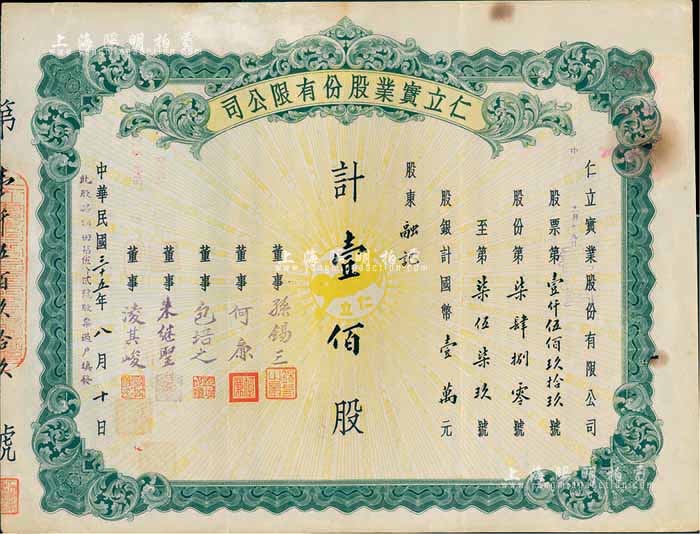 仁立實業股份有限公司
仁立實業股份有限公司
股票第壹仟伍佰玖拾玖號
股份第柒肆捌零號
至第柒伍柒玖號
股銀計國幣壹萬元
股東融記
計壹佰股
仁立
董事孫錫三
董事何廉
董事包培之
董事朱继聖
董事凌其峻
中華民國三十五年八月十日
第壹仟伍佰玖拾玖號
上海陽明拍賣
上海陽明拍賣
上海陽明拍賣